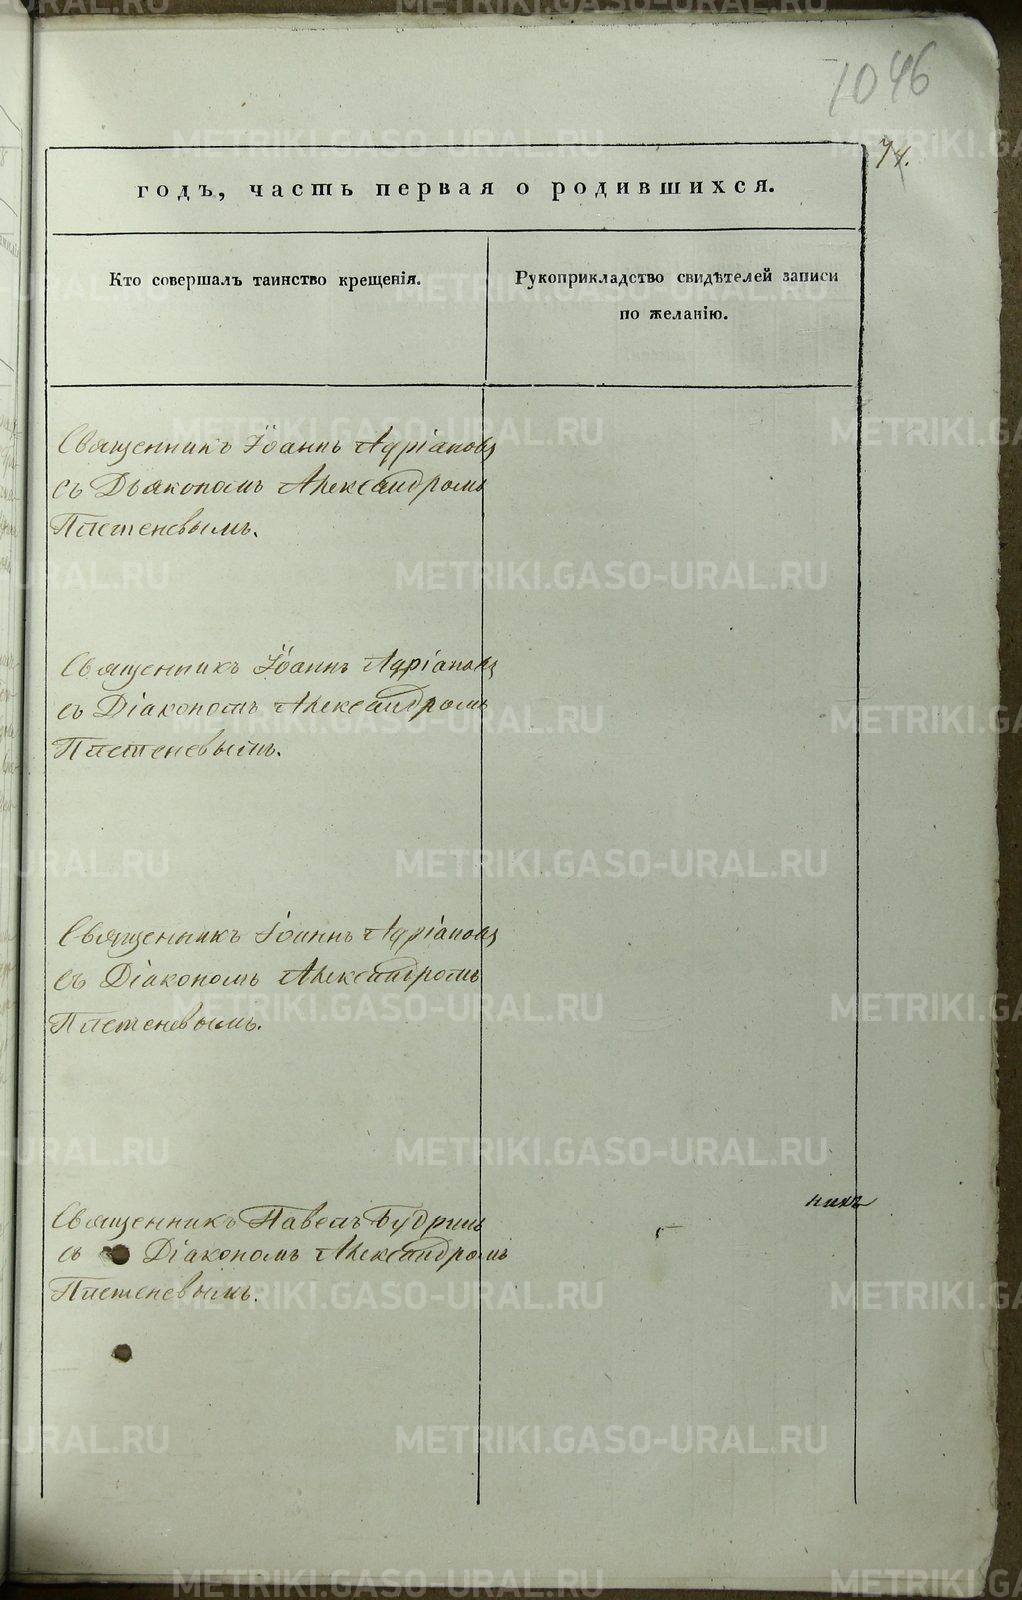 1046
74.
годъ, часть первая о родившихся.
Кто совершалъ таинство крещенія.
Рукоприкладство свидѣтелей записи
по желанію.
Священникъ Іоаннъ Адріановъ
съ Дьякономъ Александромъ
Плетеневымъ.
Священникъ Іоаннъ Адріановъ
съ Діакономъ Александромъ
Плетеневымъ.
Священникъ Іоаннъ Адріановъ
съ Діакономъ Александромъ
Плетеневымъ.
никъ
Священникъ Павелъ Будринъ
съ Діакономъ Александромъ
Плетеневымъ.
METRIKI.GASO-URAL.RU